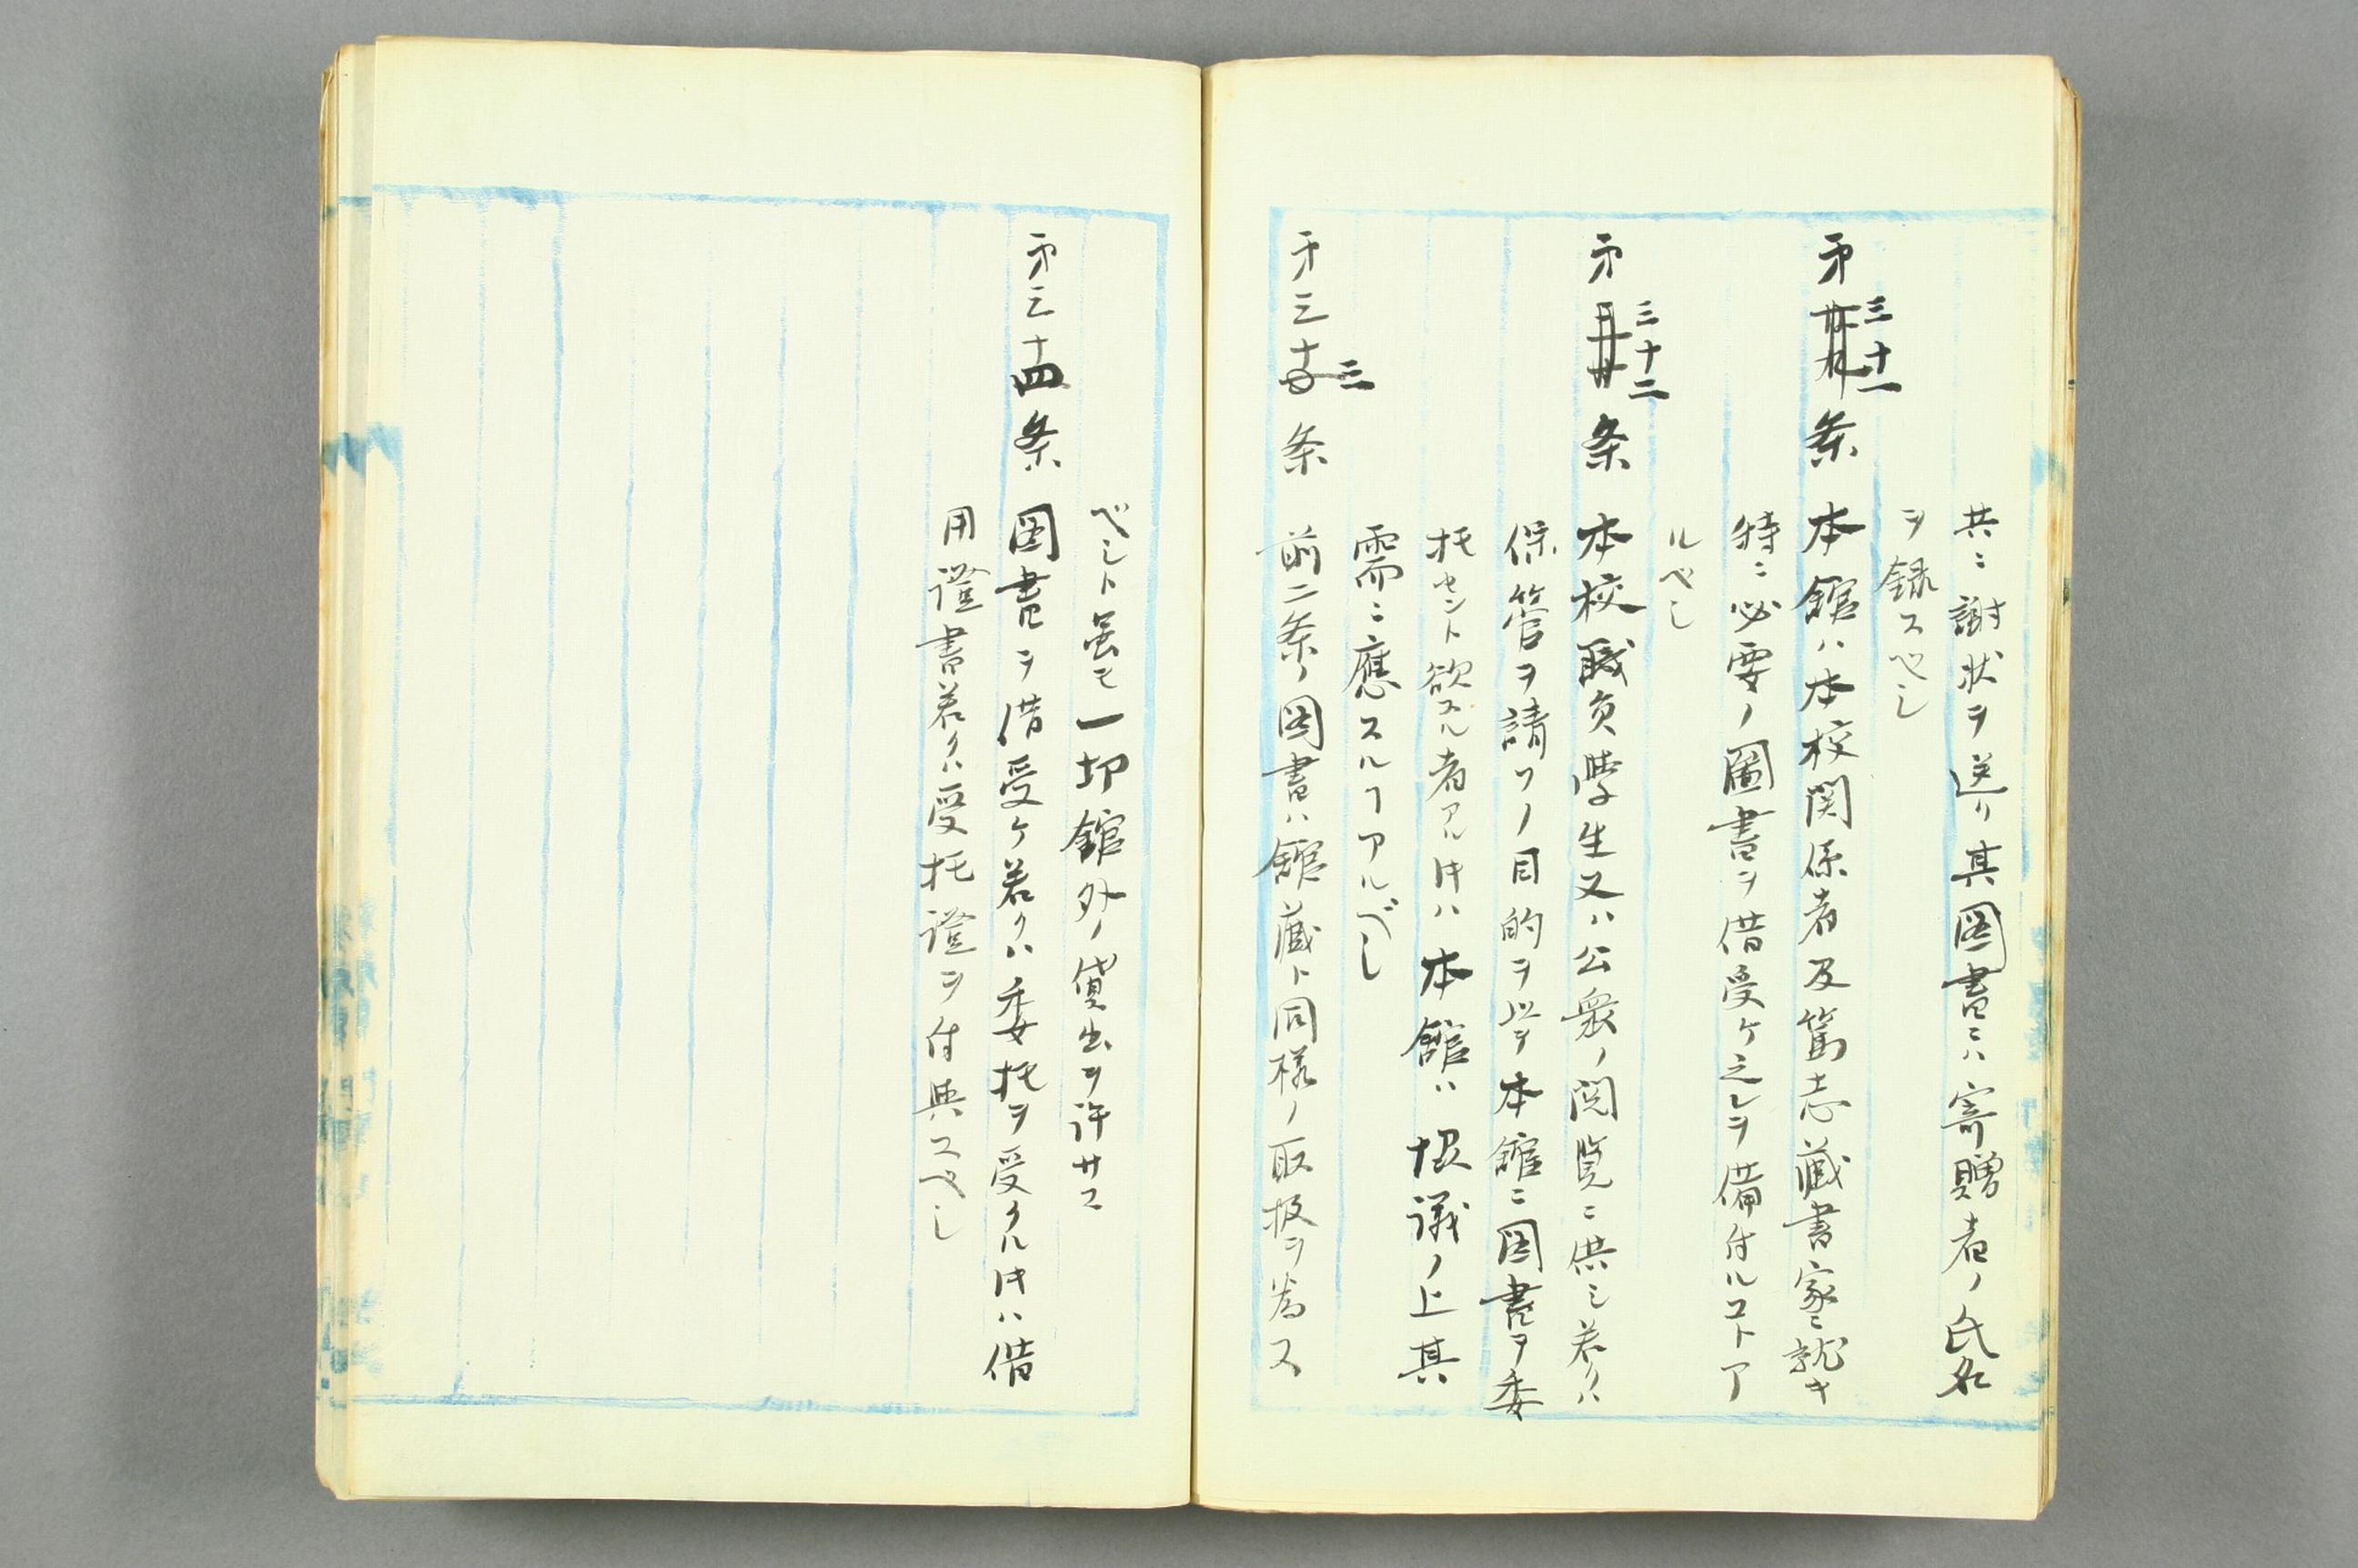 共ニ謝状ヲ送リ其図書ニハ寄贈者ノ氏名
ヲ録スベシ
第三十一条 本館ハ本校関係者及篤志蔵書家ニ就キ
特ニ必要ノ圖書ヲ借受ケ之レヲ備付ルコトア
ルベシ
第三十二条 本校職員学生又ハ公衆ノ閲覧ニ供シ若クハ
保管ヲ請フノ目的ヲ以テ本館ニ図書ヲ委
托セント欲スル者アル𪜈ハ本館ハ協議ノ上其
需ニ應スルヿアルベシ
第三十三条 前二条ノ図書ハ館蔵ト同様ノ取扱ヲ為ス
ベシト虽モ一切館外ノ貸出ヲ許サス
第三十四条 図書ヲ借受ケ若クハ委托ヲ受クル𪜈ハ借
用證書若クハ受托證ヲ付與スベシ